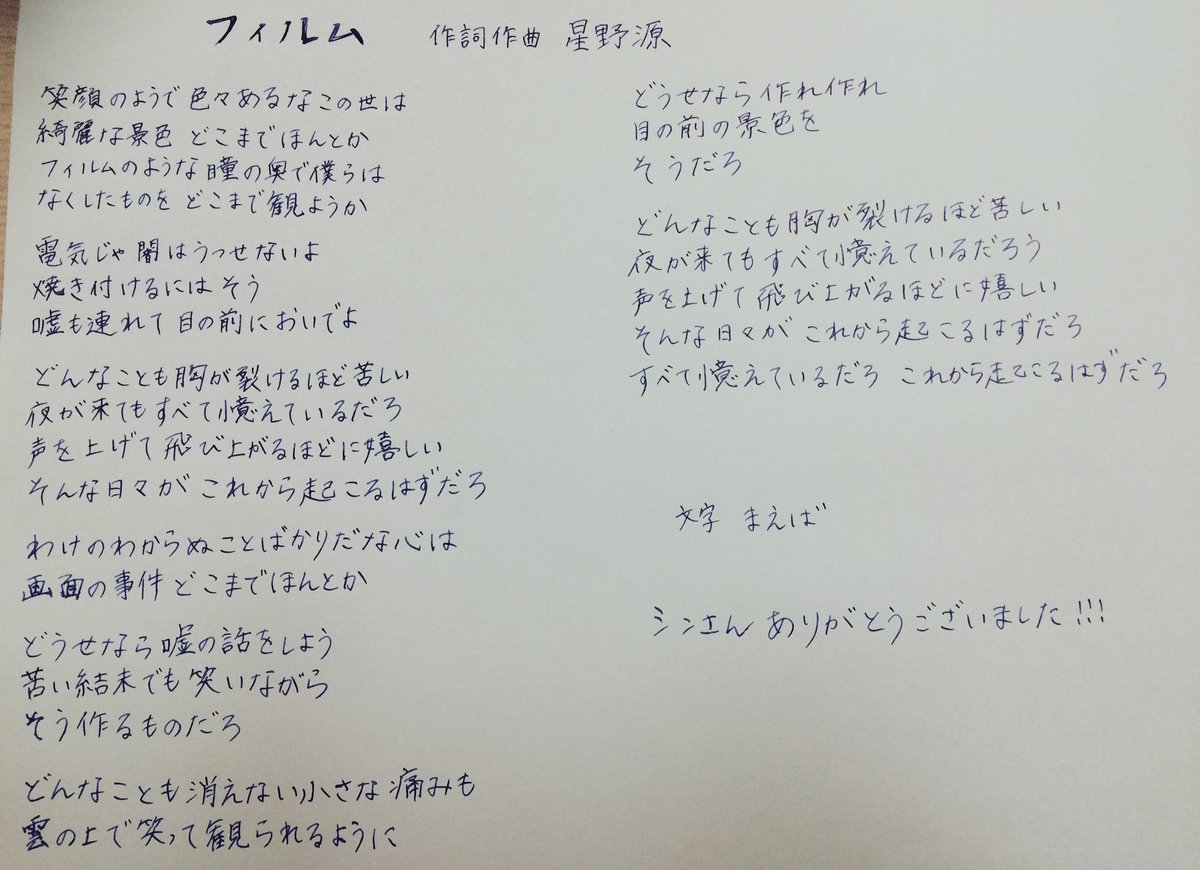 フィルム 作詞作曲 星野源
笑顔のようで 色々あるなこの世は
綺麗な景色 どこまでほんとか
フィルムのような瞳の奥で僕らは
なくしたものを どこまで観ようか
電気じゃ闇はうつせないよ
焼き付けるには そう
嘘も連れて 目の前においでよ
どんなことも胸が裂けるほど苦しい
夜が来てもすべて憶えているだろ
声を上げて飛び上がるほどに嬉しい
そんな日々が これから起こるはずだろ
わけのわからぬことばかりだな心は
画面の事件 どこまでほんとか
どうせなら嘘の話をしよう
苦い結末でも笑いながら
そう作るものだろ
どんなことも消えない小さな痛みも
雲の上で笑って観られるように
どうせなら作れ作れ
目の前の景色を
そうだろ
どんなことも胸が裂けるほど苦しい
夜が来てもすべて憶えているだろう
声を上げて飛び上がるほどに嬉しい
そんな日々が これから起こるはずだろ
すべて憶えているだろ これから起こるはずだろ
文字 まえば
シンさん ありがとうございました!!!